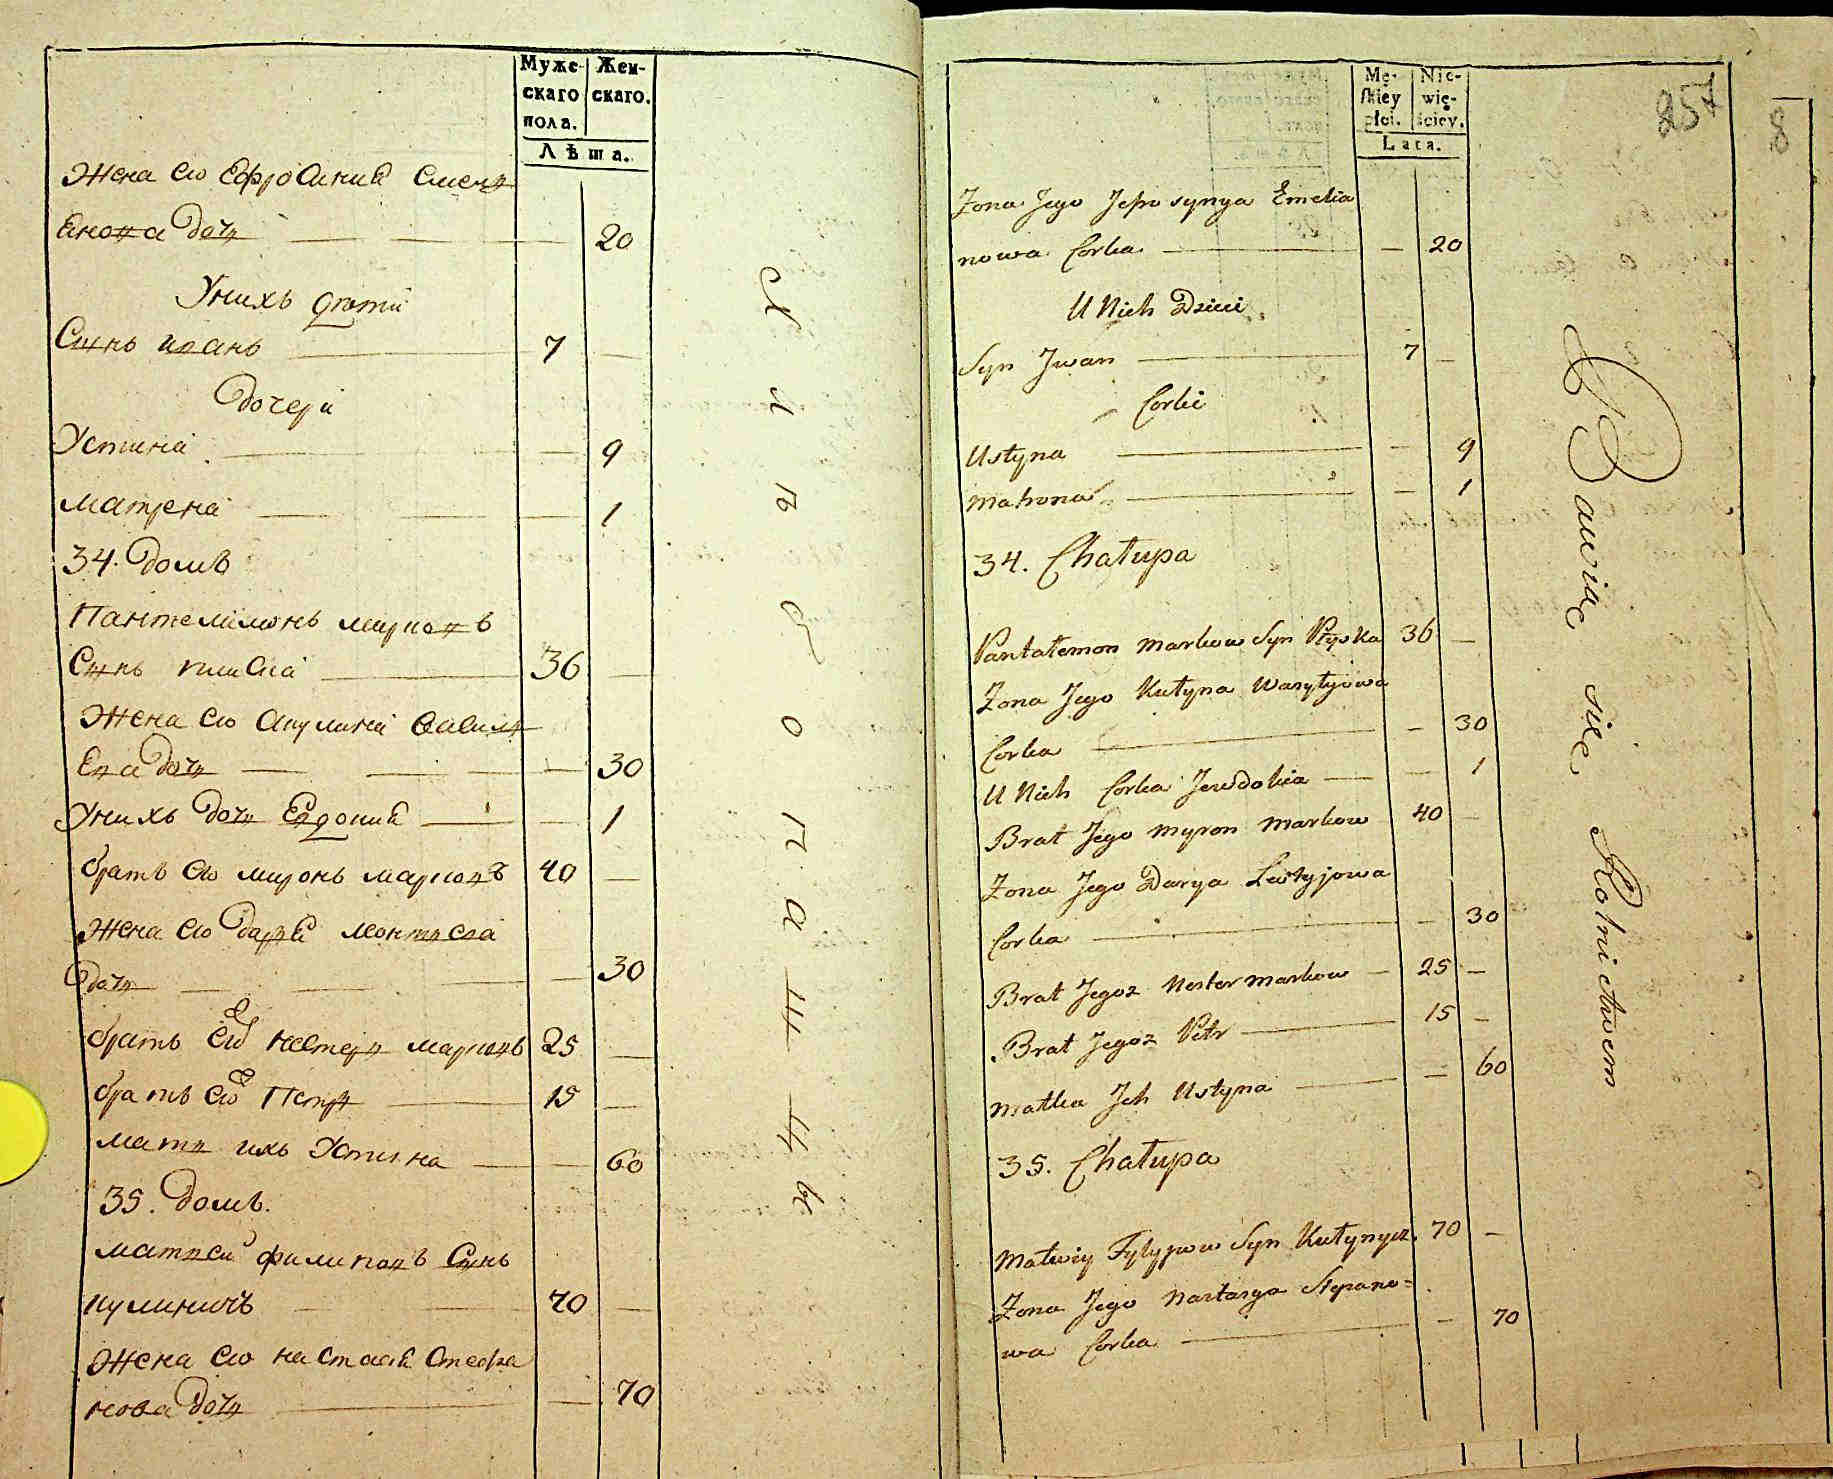 Муже- Жен-
скаго скаго.
пола.
Лѣта.
Жена его Ефросиниа Смеля
Енова дочь — — — 20
У нихъ дѣти
Сынъ иванъ — 7 —
Дочери
Устина — — 9
матрена — — 1
34. Домъ
Пантелимонъ марковъ
Сынъ — 36 —
Жена его Акулина Васил
Ева дочь — — — 30
У нихъ дочь Евдокиа — — 1
братъ его миронъ марковъ 40 —
Жена его дариа леонтиева
дочь — — — 30
братъ Его нестеръ марковъ 25 —
братъ его Петръ — 15 —
мать ихъ Устина — — 60
35. Домъ.
матвей филиповъ Сынъ
кулиничъ — 70 —
Жена его настасиа Стефа
нова дочь — — 70
Хлебопашцы
Mę- Nie-
skiey wię-
płci. sciey.
Lata.
257
8
Żona Jego Jefrosynya Emelia
nowa Corka — — 20
U Nich Dzieci
Syn Jwan — 7 —
Corki
Ustyna — — 9
Matrona — — 1
34. Chałupa
Pantałemon Markow Syn 36 —
Żona Jego Kulyna Wasylyjowa
Corka — — 30
U Nich Corka Jewdokia — — 1
Brat Jego Myron Markow 40 —
Żona Jego Darya
Corka — — 30
Brat Jegoż Nester Markow — 25 —
Brat Jegoż Petr — 15 —
Matka Jch Ustyna — — 60
35. Chałupa
Matwiy Fylypow Syn Kulynycz. 70 —
Żona Jego Nastasya Stepano=
wa Corka — — 70
Bawiąc się Rolnictwem